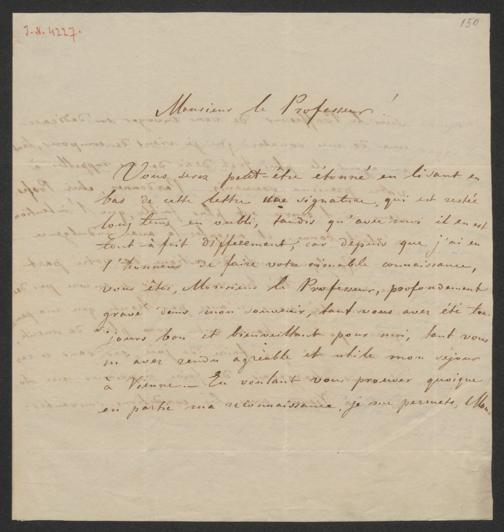 J.N. 4227.
150
Monsieur le Professeur!
Vous serez peut-être étonné en lisant en
bas de cette lettre une signature, qui est restée
longtems en oubli, tandis qu'avec moi il en est
tout-à-fait differement, car depuis que j'ai eu
l'honneur de faire votre aimable connaissance,
vous êtes, Monsieur le Professeur, profondement
gravé dans mon souvenir, tant vous avez été tou-
jours bon et bienveillant pour moi, tant vous
m'avez rendu agréable et utile mon sejour
à Vienne. – En voulant vous prouver quoique
en partie ma reconnaissance, je me permets, Mon-